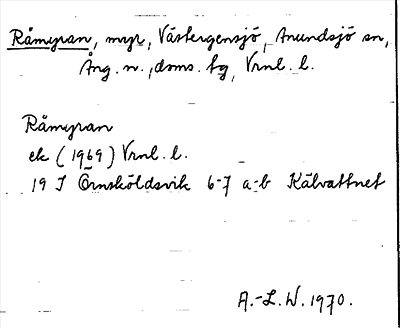 Råmyran, myr, Västergensjö, Anundsjö sn,
Ång. n., doms. bg, Vrnl. l.
Råmyran
ek (1969) Vrnl. l.
19 J Örnsköldsvik 6-7 a-b Kälvattnet
A.-L. W. 1970.